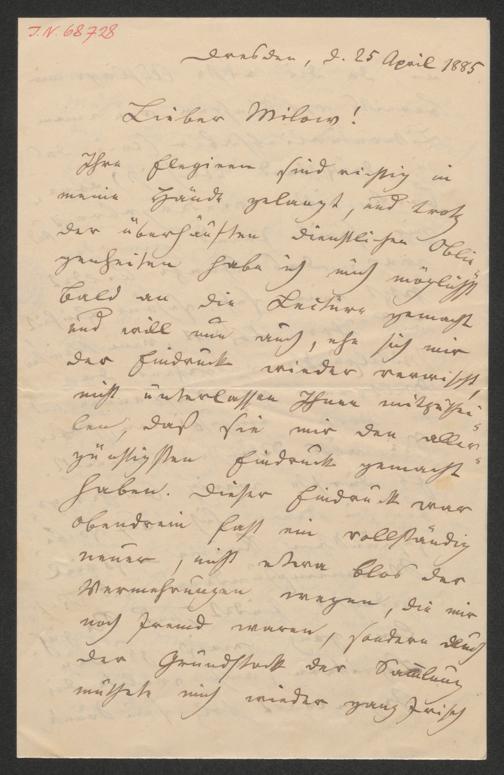 J.N. 68728
Dresden, d. 25 April 1885
Lieber Milow!
Ihre Elegieen sind richtig in
meine Hände gelangt, und trotz
der überhäuften dienstlichen Oblie
genheiten habe ich mich möglichst
bald an die Lectüre gemacht
und will nun auch, ehe sich mir
der Eindruck wieder verwischt,
nicht unterlassen Ihnen mitzuthei-
len, daß sie mir den aller-
günstigsten Eindruck gemacht
haben. Dieser Eindruck war
obendrein fast ein vollständig
neuer, nicht etwa blos der
Vermehrungen wegen, die mir
noch fremd waren, sondern auch
der Grundstock der Sammlung
muthete mich wieder ganz frisch